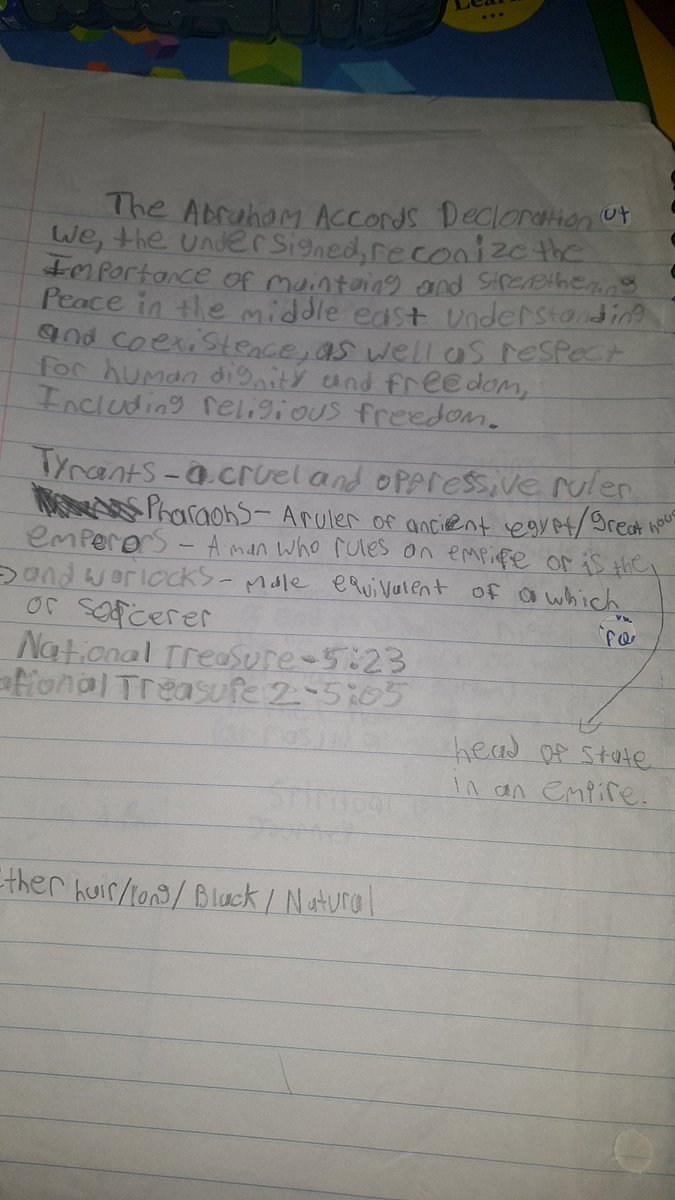 The Abraham Accords Decloration
We, the undersigned, reconize the
Importance of maintaing and strengthening
Peace in the middle east understanding
and coexistence, as well as respect
for human dignity and freedom,
Including religious freedom.
Tyrants - a cruel and oppressive ruler
Pharaohs - A ruler of ancient egypt/Great
emperors - A man who rules an empire or is the
and warlocks - male equivalent of a which
or sorcerer
National Treasure - 5:23
ational Treasure 2 - 5:05
head of state
in an empire.
ther hair/long/Black/Natural